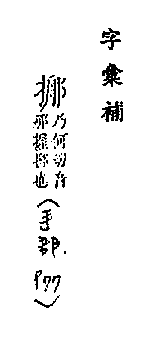 字彙補
挪乃何切音
那搓挪也
(手部.
P77)